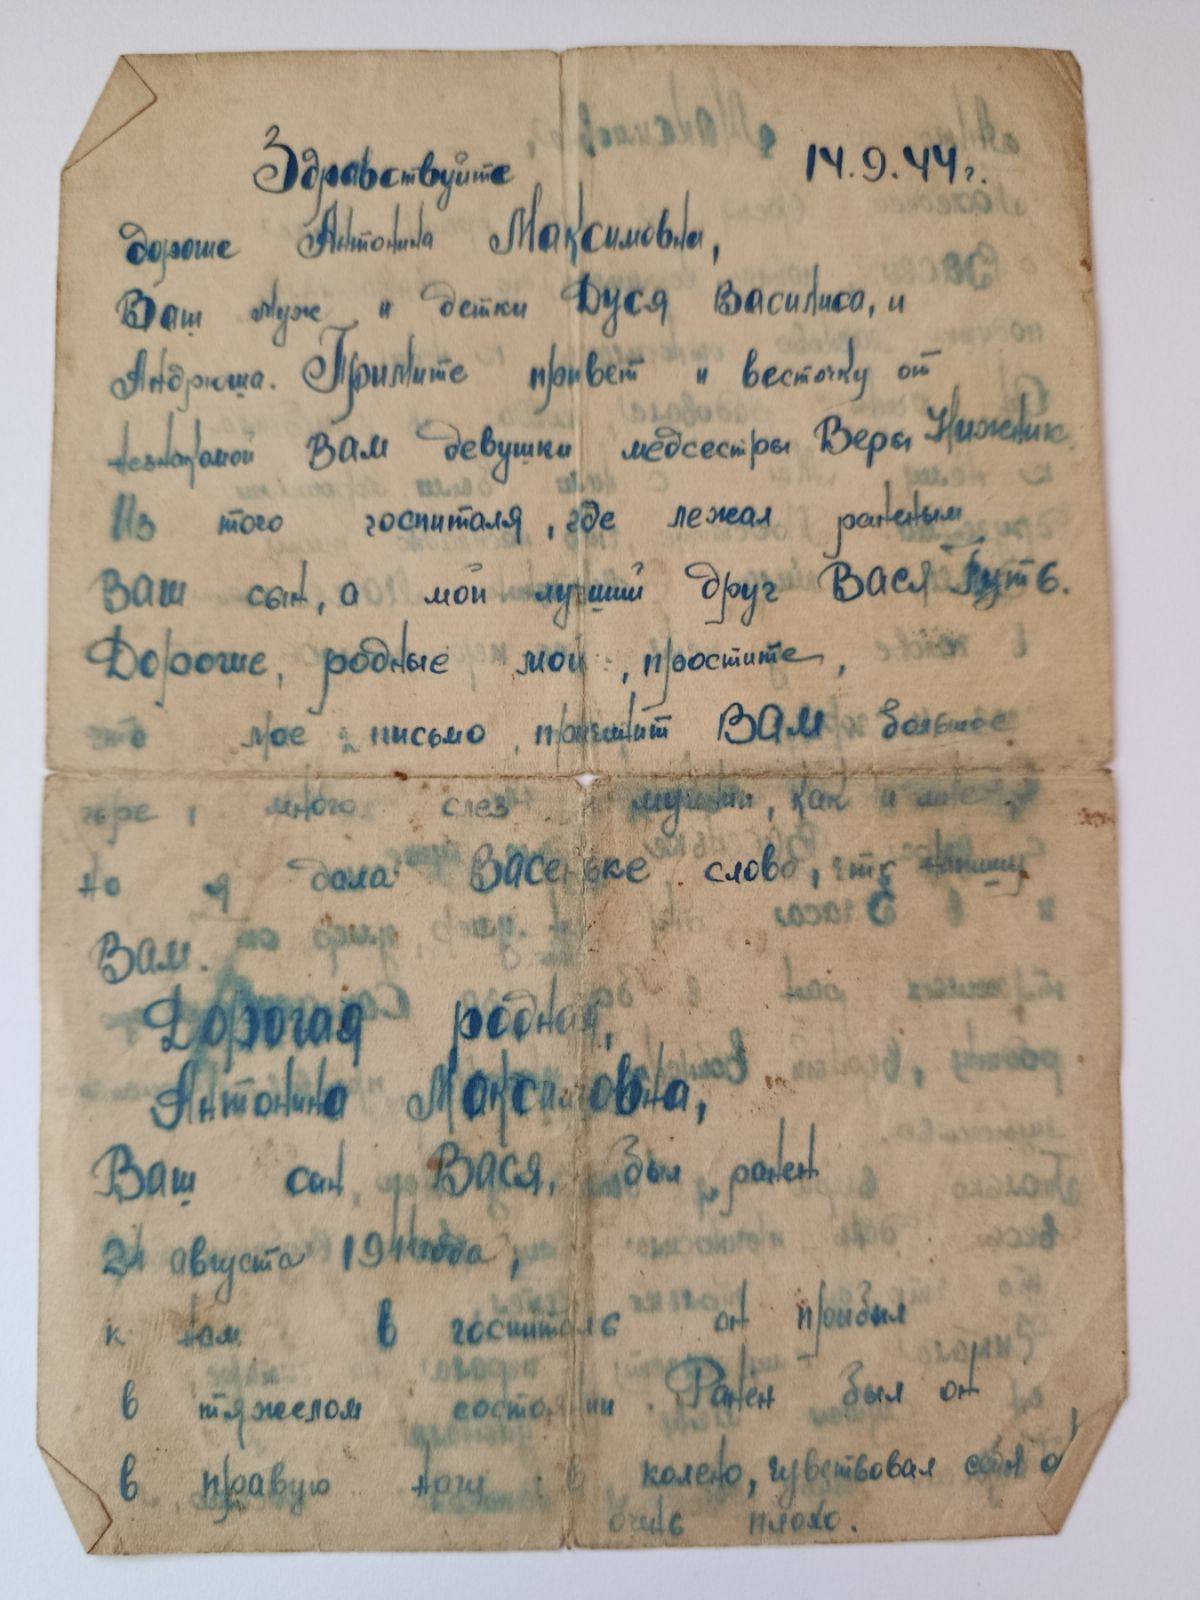 Здравствуйте 14.9.44г.
дорогие Антонина Максимовна,
Ваш муж и детки Дуся Василиса, и
Андрюша. Примите привет и весточку от
незнакомой Вам девушки медсестры Веры Нижник.
Из того госпиталя, где лежал раненым
Ваш сын, а мой лучший друг Вася Путь.
Дорогие, родные мои, простите,
что мое письмо, причинит Вам большое
горе, много слез и мучений, как и мне,
но я дала Васеньке слово, что напишу
Вам.
Дорогая родная,
Антонина Максимовна,
Ваш сын Вася, был ранен
августа 1944 года,
к нам в госпиталь он прибыл
в тяжелом состоянии. Ранен был он
в правую ногу в колено, чувствовал себя
очень плохо.